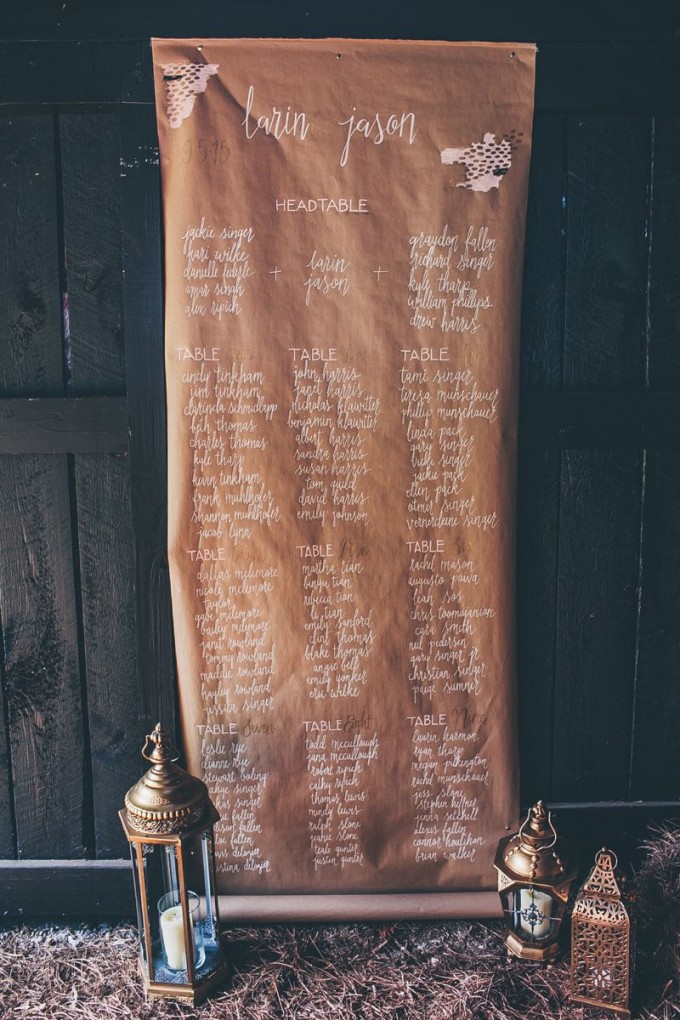 larin jason
9.5.15
HEADTABLE
jackie singer
kari wilke
danielle federle
amar singh
alex ripich
+
larin
jason
+
graydon fallen
richard singer
kyle tharp
william phillips
drew harris
TABLE
cindy tinkham
jim tinkham
clarinda schmidlapp
beth thomas
charles thomas
kyle tharp
kevin tinkham
frank muhlhofer
shannon muhlhofer
jacob lynn
TABLE
john harris
janet harris
nicholas klawitter
benjamin klawitter
albert harris
sandra harris
susan harris
tom guild
david harris
emily johnson
TABLE
tami singer
teresa munschauer
phillip munschauer
linda pack
gary singer
singer
jackie pack
ellen pack
otmer singer
vernerdeine singer
TABLE
dallas mclemore
nicole mclemore
taylor
gabe mclemore
bailey mclemore
janet rowland
tommy rowland
maddie rowland
hayley rowland
jessica singer
TABLE five
martha tian
binyu tian
rebecca tian
li tian
emily sanford
clint thomas
blake thomas
angie bell
emily yonker
eric wilke
TABLE six
rachel mason
augusto paiva
leah sos
chris toomajanian
cara smith
neil pedersen
gary singer jr
christian singer
paige sumner
TABLE Seven
leslie rye
dianne rye
stewart boling
singer
singer
fallen
fallen
deloyier
deloyier
TABLE Eight
todd mccullough
jana mccullough
robert ripich
cathy ripich
thomas lewis
mindy lewis
ralph slone
slone
gunter
justin gunter
TABLE Nine
lauren harmon
ryan tharp
megan pilkington
rachel munschauer
jess slone
stephen heffner
jenna satchell
alexis fallen
connor houlihan
brian walker